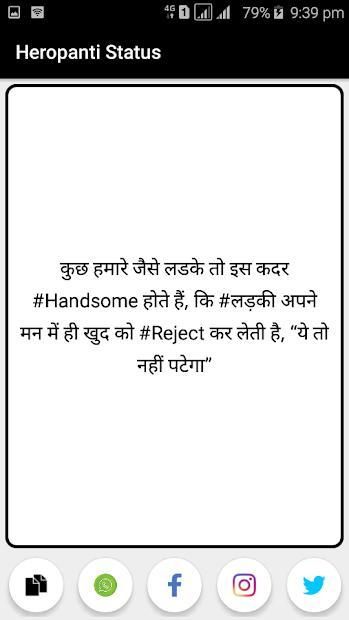 4G 1 79% 9:39 pm
Heropanti Status
कुछ हमारे जैसे लडके तो इस कदर
#Handsome होते हैं, कि #लड़की अपने
मन में ही खुद को #Reject कर लेती है, “ये तो
नहीं पटेगा”